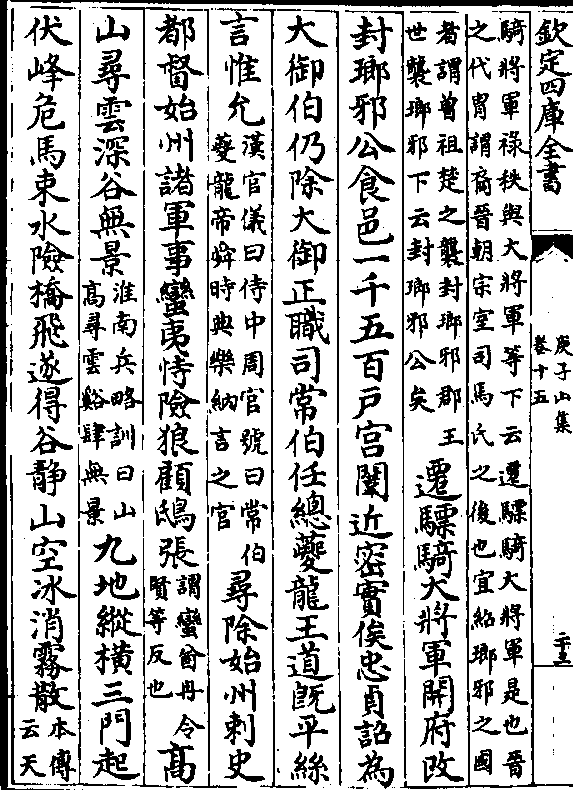 欽定四庫全書
庚子山集
卷十五
騎將軍祿秩與大將軍等下云遷驃騎大將軍是也晉
之代胄謂裔晉朝宗室司馬氏之後也宜紹瑯邪之國
者謂曾祖楚之襲封瑯邪郡王
世襲瑯邪下云封瑯邪公矣
遷驃騎大將軍開府改
封瑯邪公食邑一千五百戸宫闈近密實俟忠貞詔為
大御伯仍除大御正職司常伯任總夔龍王道旣平絲
言惟允
漢官儀曰侍中周官號曰常伯
夔龍帝舜時典樂納言之官
尋除始州刺史
都督始州諸軍事蠻夷恃險狼顧鴟張
謂蠻酋冉令
賢等反也
髙
山尋雲深谷無景
淮南兵略訓曰山
髙尋雲谿肆無景
九地縱横三門起
伏峰危馬束水險橋飛遂得谷靜山空冰消霧散
本傳
云天